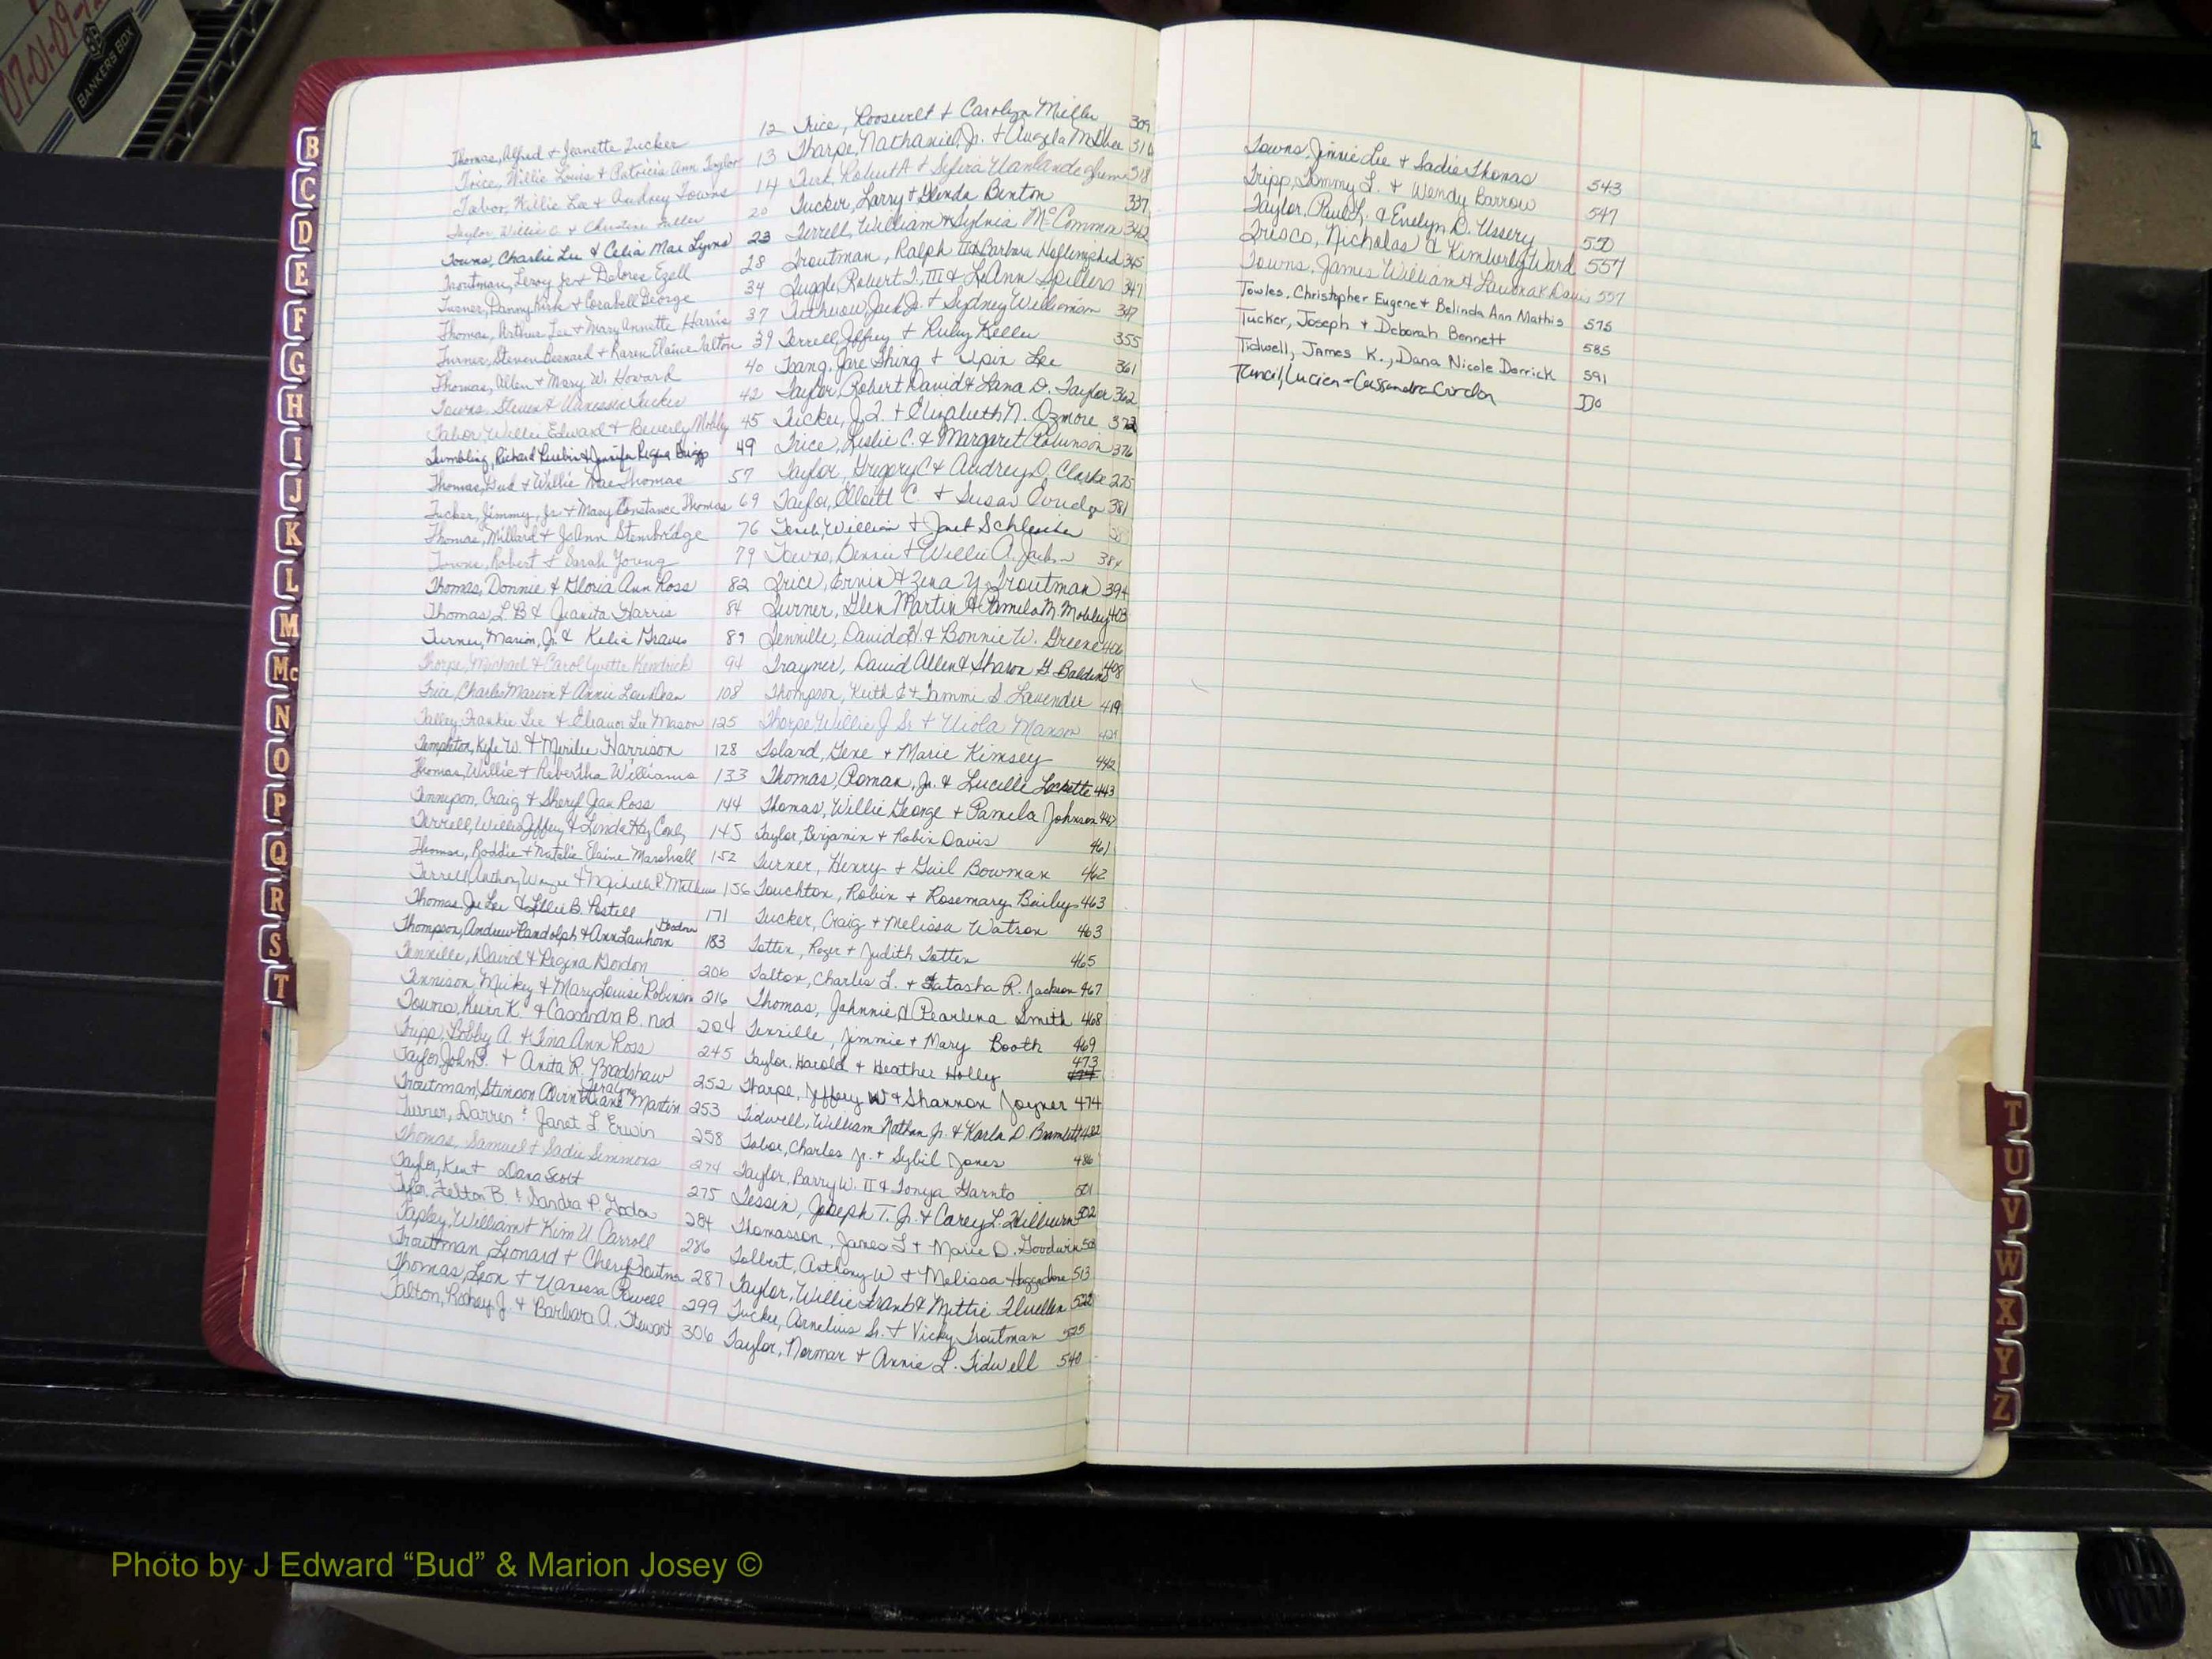 07-01-09
BANKERS BOX
B
C
D
E
F
G
H
I
J
K
L
M
Mc
N
O
P
Q
R
S
T
Thomas, Alfred & Jeanette Tucker 12
Trice, Willie Louis & Patricia Ann Taylor 13
Tabor, Willie Lee & Audrey Towns 14
Taylor, Willie C. & Christine Fuller 20
Towns, Charlie Lee & Celia Mae Lyons 23
Troutman, Leroy Jr & Delores Ezell 28
Turner, Danny Kirk & Corabell George 34
Thomas, Arthur Lee & Mary Annette Harris 37
Turner, Steven Bernard & Karen Elaine Talton 39
Thomas, Allen & Mary W. Howard 40
Towns, Steven & Vanessa Tucker 42
Tabor, Willie Edward & Beverly Mobly 45
Tumbling, Richard & Jennifer Regina 49
Thomas, Gus & Willie Mae Thomas 57
Tucker, Jimmy, Jr. & Mary Constance Thomas 69
Thomas, Millard & JoAnn Stembridge 76
Towns, Robert & Sarah Young 79
Thomas, Donnie & Gloria Ann Ross 82
Thomas, L.B & Juanita Harris 84
Turner, Marion, Jr. & Kelia Graves 89
Thorpe, Michael & Carol Yvette Kendrick 94
Trice, Charles Marion & Annie Lou Dean 108
Talley, Frankie Lee & Eleanor Lee Mason 125
Templeton, Kyle W. & Merilee Harrison 128
Thomas, Willie & Rebertha Williams 133
Tennyson, Craig & Sheryl Jean Ross 144
Terrell, Willie Jeffery & Linda 145
Thomas, Roddie & Natalie Elaine Marshall 152
Terrell, Anthony Wayne & Michelle R. Mathews 156
Thomas, Joe Lee & Lillie B. Postell 171
Thompson, Andrew Randolph & Ann Lauhorn 183
Tennille, David & Regina Gordon 206
Tennison, Mickey & Mary Louise Robinson 216
Towns, Kevin K. & Cassandra B. Ned 224
Tripp, Bobby A. & Tina Ann Ross
Taylor, John P. & Anita R. Bradshaw 245
Troutman, Stinson & Martin 252
Turner, Darren & Janet L Erwin 253
Thomas, Samuel & Sadie Simmons 258
Taylor, Ken & Dana Scott 274
Tyler, Felton B. & Sandra P. 275
Tapley, William & Kim U. Carroll 284
Troutman, Leonard & Cheryl Troutman 286
Thomas, Leon & Vanessa Powell 287
Talton, Rodney J. & Barbara A. Stewart 299
306
Trice, Roosevelt & Carolyn Miller 309
Tharpe, Nathaniel, Jr. & Angela McGhee 316
Turk, Robert A & 318
Tucker, Larry & Glenda Benton 337
Terrell, William & Sylvia McCommon 342
Troutman, Ralph III & Barbara Hollingshed 345
Tuggle, Robert T., III & LeAnn Spillers 347
Jack Jr. & Sydney Williamson 347
Terrell, Jeffrey & Ruby Keller 355
Tsang, Jare Shing & Lee 361
Taylor, Robert David & Lana D. Taylor 362
Tucker, J.T. & Elizabeth N. Ozmore 372
Trice, Leslie C. & Margaret Robinson 376
Taylor, Gregory C & Audrey D. Clarke 275
Taylor, Elliott C. & Susan 381
William & Janet
Towns, Bennie & Willie A. Jackson 384
Trice, Ernin & Zena Y. Troutman 394
Turner, Glen Martin & Pamela M. Mobley 403
Tennille, David H. & Bonnie W. Greene 406
Trayner, David Allen & Sharon G. 408
Thompson, Keith & Tammi S. Lavender 419
Thorpe, Willie J Sr & Viola Manson
Toland, Gene & Marie Kimsey 442
Thomas, Roman, Jr. & Lucille Lockette 443
Thomas, Willie George & Pamela Johnson 447
Taylor, Benjamin & Robin Davis 461
Turner, Henry & Gail Bowman 462
Touchton, Robin & Rosemary Bailey 463
Tucker, Craig & Melissa Watson 463
Totten, Roger & Judith Totten 465
Talton, Charles L. & Natasha R. Jackson 467
Thomas, Johnnie & Pearlena Smith 468
Tennille, Jimmie & Mary Booth 469
Taylor, Harold & Heather Holly 473
Tharpe, Jeffery W & Shannon Joyner 474
Tidwell, William Nathan Jr. & Karla D. Bramlett 482
Tabor, Charles Jr. & Sybil Jones 486
Taylor, Barry W. II & Tonya Garnto 501
Tessin, Joseph T. Jr. & Carey L. 502
Thomasson, James L & Marie D. Goodwin
Tolbert, Anthony W & Melissa 513
Taylor, Willie Frank & Mittie Fluellen 522
Tucker, Cornelius Sr. & Vicky Troutman 525
Taylor, Norman & Annie L. Tidwell 540
Towns, Jimmie Lee & Sadie Thomas 543
Tripp, Tommy L. & Wendy Barrow 547
Taylor, Paul L. & Evelyn D. Ussery 550
Tresco, Nicholas & Kimberly Ward 557
Towns, James William & Davis 557
Towles, Christopher Eugene & Belinda Ann Mathis 575
Tucker, Joseph & Deborah Bennett 585
Tidwell, James K., Dana Nicole Derrick 591
Tancil, Lucien & Cassandra Cordon
T
U
V
W
X
Y
Z
Photo by J Edward “Bud” & Marion Josey ©